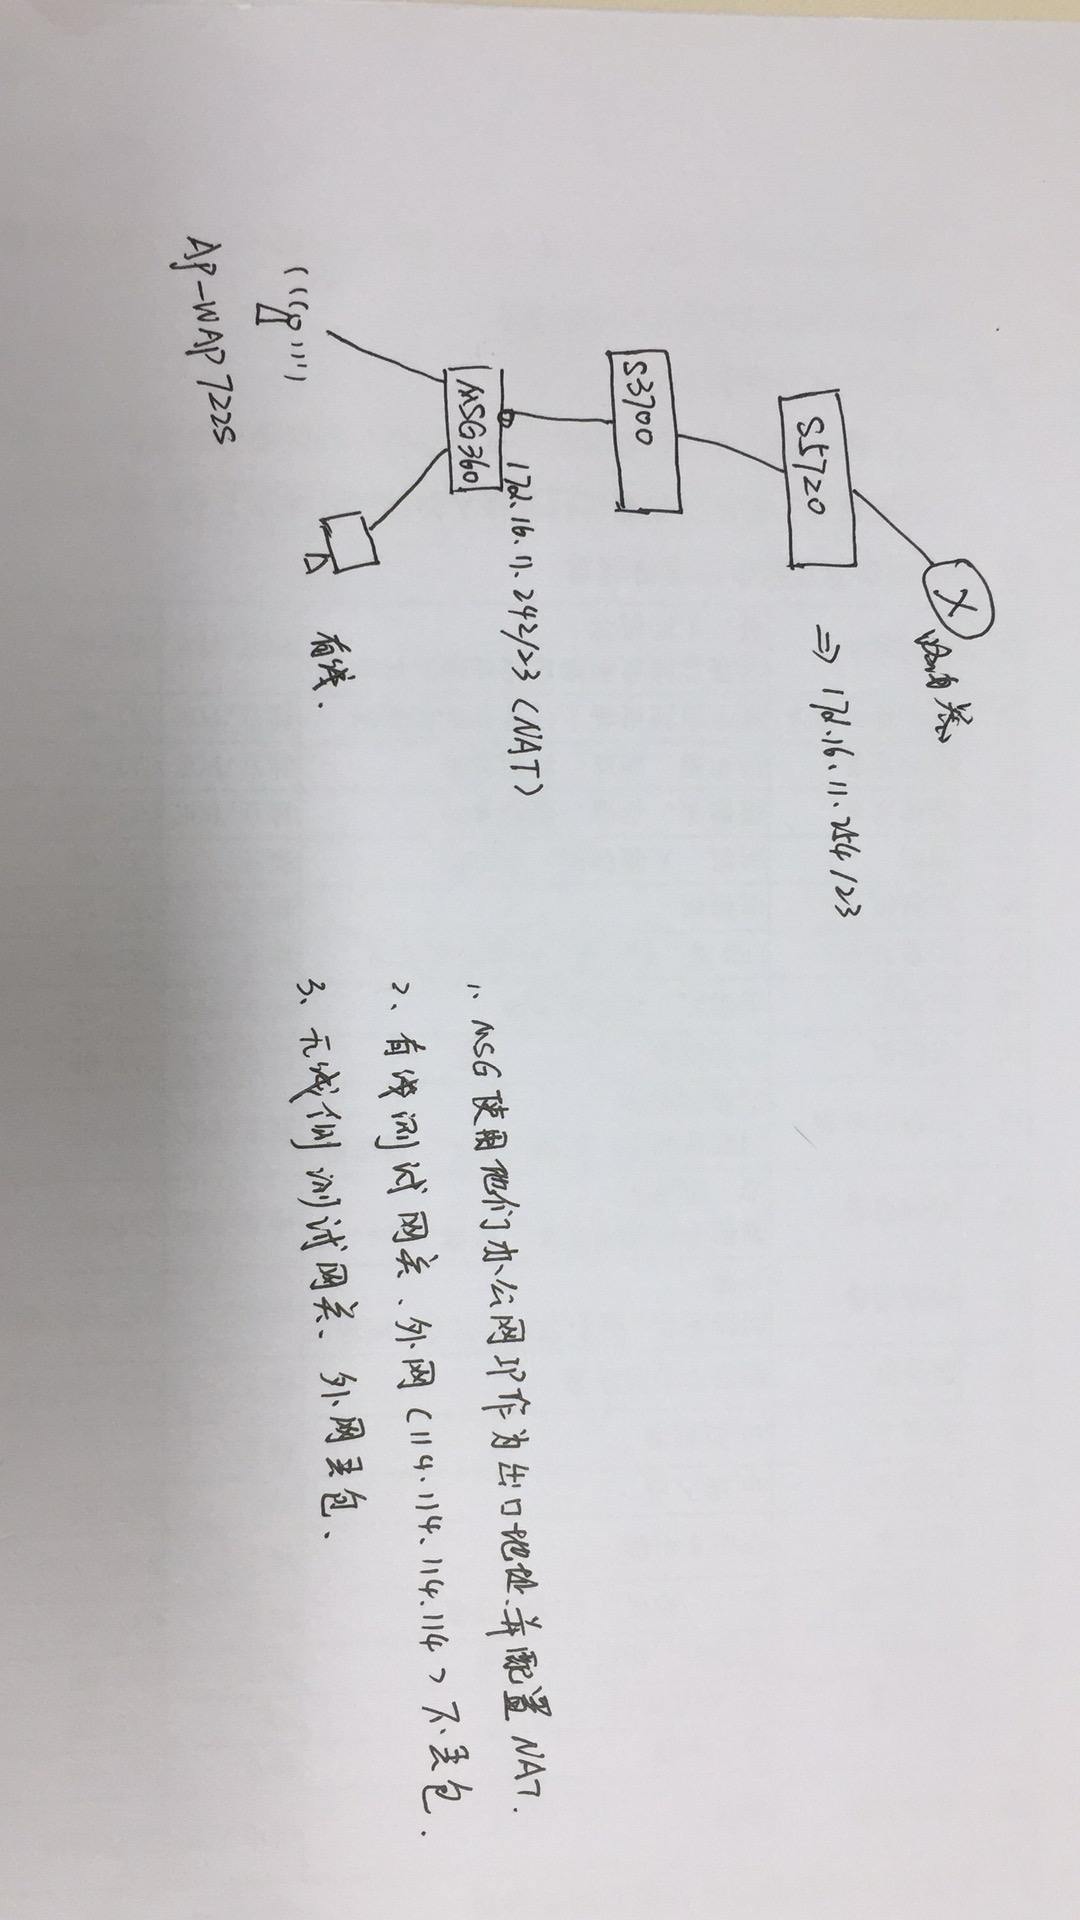 路由器
S5720
⇒ 172.16.11.254/23
S3700
172.16.11.242/23 (NAT)
MSG360
有线.
AP-WAP722S
1、MSG使用他们办公网IP作为出口地址、并配置NAT.
2、有线测试网关、外网(114.114.114.114)不丢包.
3、无线侧测试网关、外网丢包、